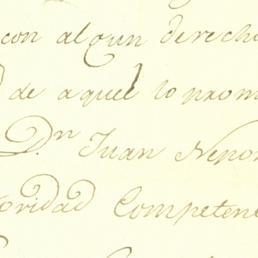 con algun derecho
de aquel lo prom
Dn Juan Nepom
toridad Competen